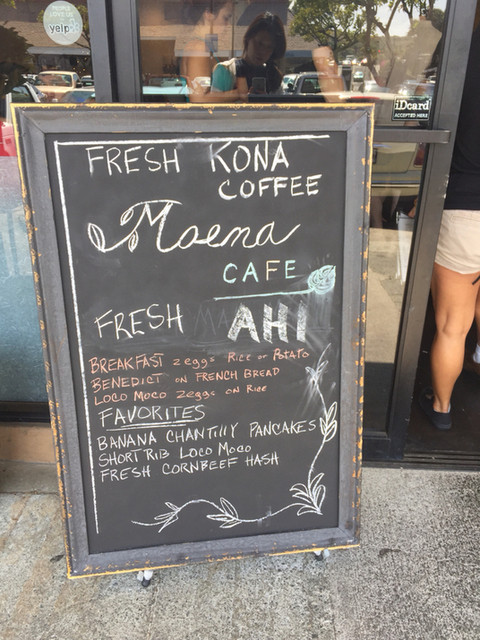 yelp
iDcard
ACCEPTED HERE
FRESH KONA
COFFEE
Moena
CAFE
FRESH AHI
BREAKFAST 2 eggs RICE or POTATO
BENEDICT ON FRENCH BREAD
LOCO MOCO 2 eggs ON RICE
FAVORITES
BANANA CHANTILLY PANCAKES
SHORT RIB LOCO MOCO
FRESH CORNBEEF HASH